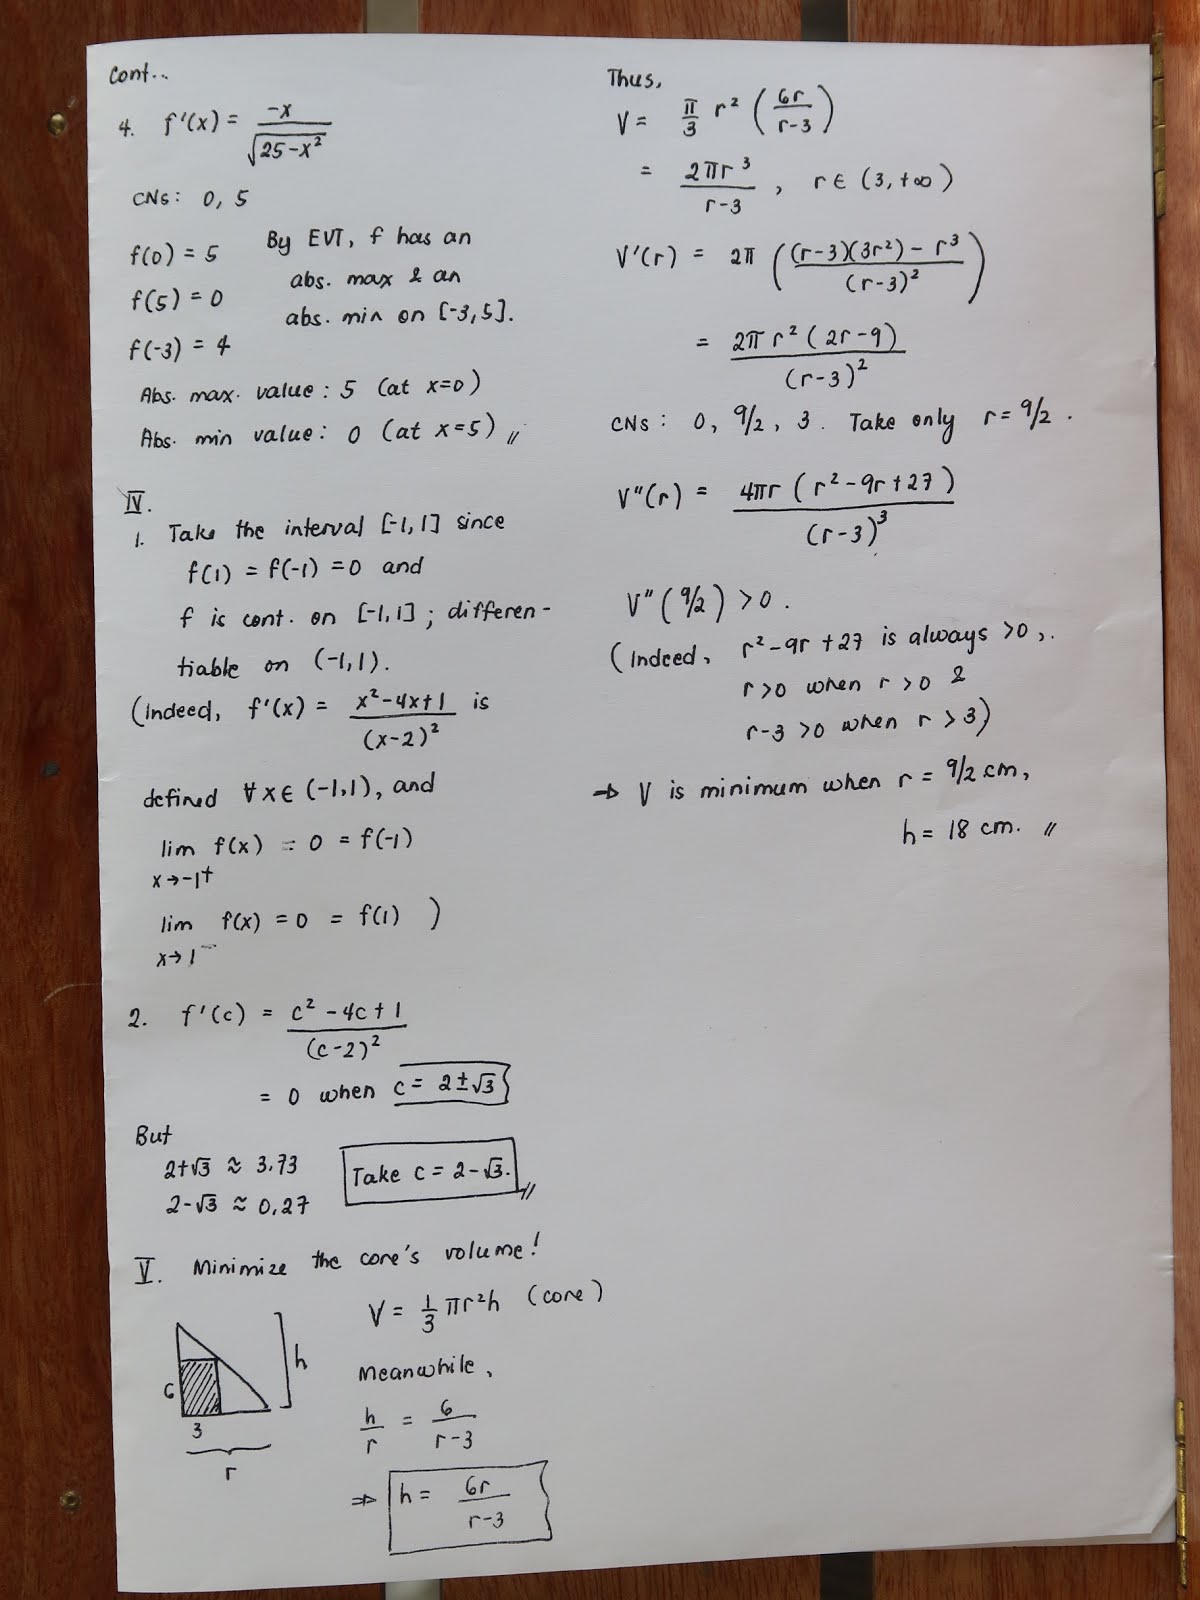 Cont...
4. f'(x) = -x / √(25-x²)
CNs: 0, 5
f(0) = 5
f(5) = 0
f(-3) = 4
By EVT, f has an
abs. max & an
abs. min on [-3,5].
Abs. max. value: 5 (at x=0)
Abs. min value: 0 (at x=5) //
IV.
1. Take the interval [-1,1] since
f(1) = f(-1) = 0 and
f is cont. on [-1,1]; differen-
tiable on (-1,1).
(Indeed, f'(x) = x²-4x+1 / (x-2)² is
defined ∀x∈(-1,1), and
lim f(x) = 0 = f(-1)
x→-1⁺
lim f(x) = 0 = f(1) )
x→1⁻
2. f'(c) = c²-4c+1 / (c-2)²
= 0 when c = 2±√3
But
2+√3 ≈ 3.73
2-√3 ≈ 0.27
Take c = 2-√3. //
V. Minimize the cone's volume!
V = 1/3 πr²h (cone)
h
6
3
r
Meanwhile,
h/r = 6/r-3
⇒ h = 6r/r-3
Thus,
V = π/3 r² (6r/r-3)
= 2πr³/r-3, r∈(3,+∞)
V'(r) = 2π ((r-3)(3r²) - r³ / (r-3)²)
= 2πr²(2r-9) / (r-3)²
CNs: 0, 9/2, 3. Take only r = 9/2.
V"(r) = 4πr(r²-9r+27) / (r-3)³
V"(9/2) > 0.
(Indeed, r²-9r+27 is always >0,
r>0 when r>0 &
r-3>0 when r>3)
⇒ V is minimum when r = 9/2 cm,
h = 18 cm. //